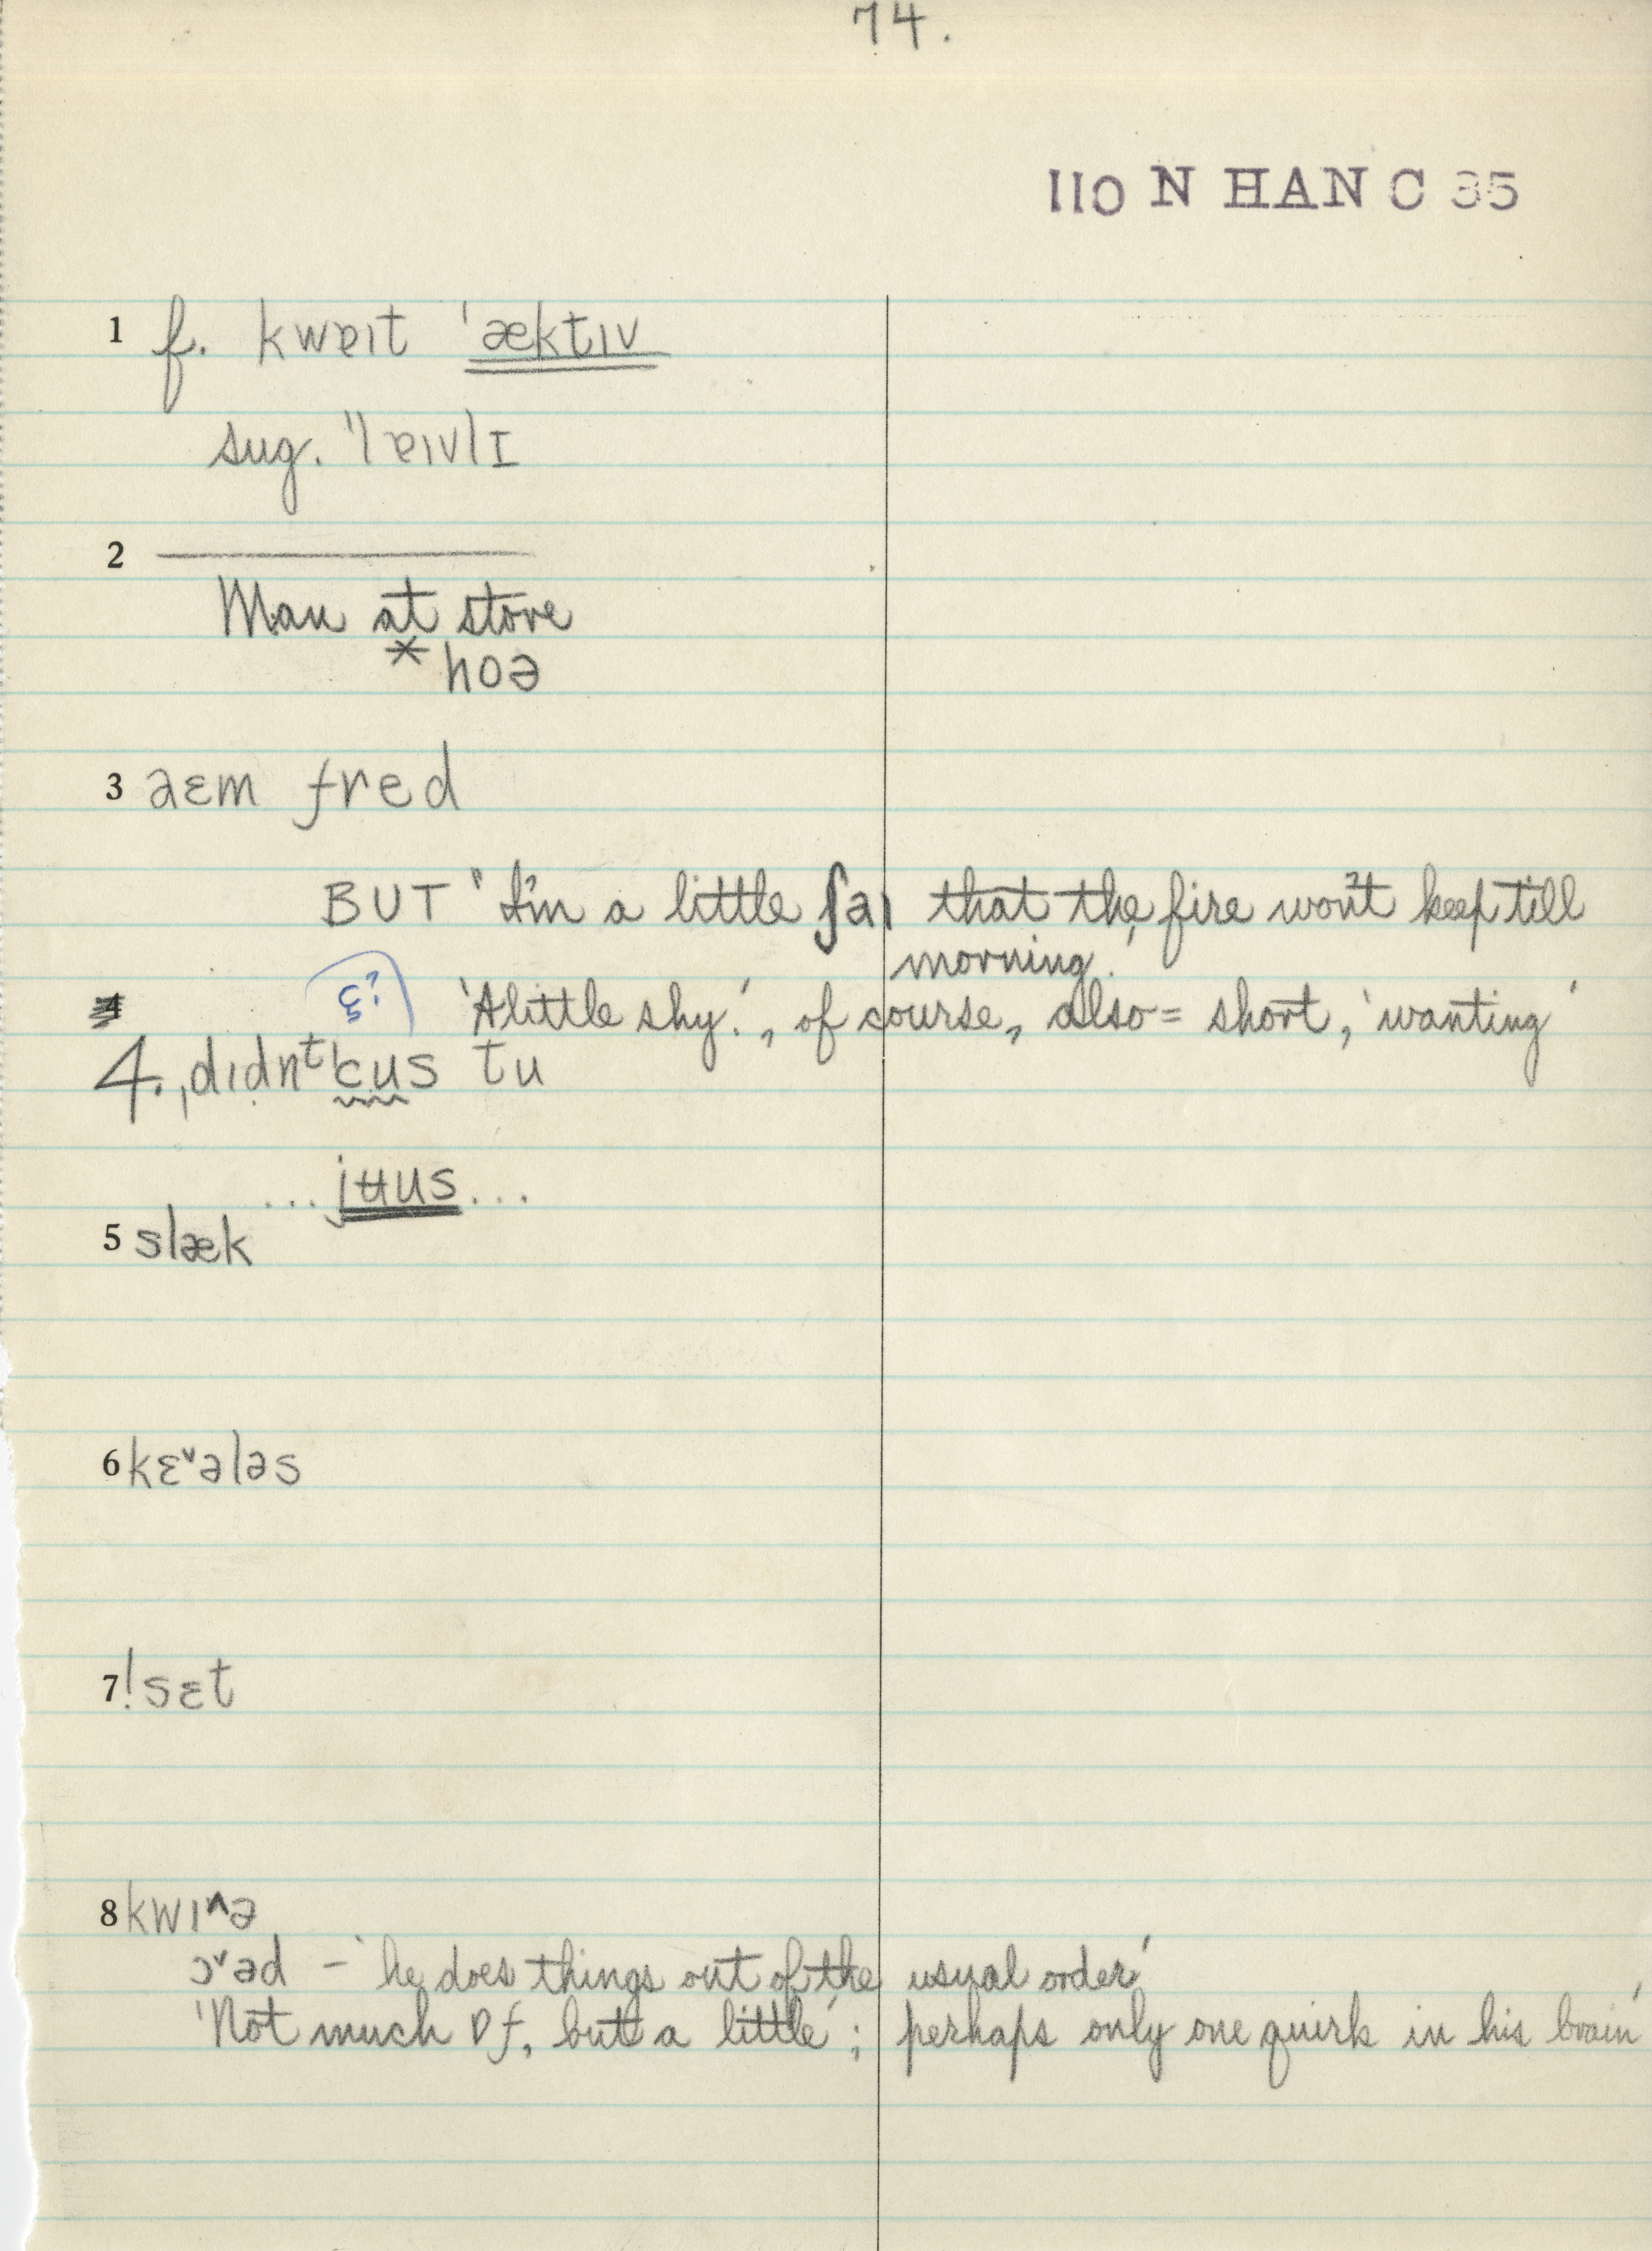 74.
110 N HAN C 35
1 f. kwɐɪt ˈæktɪv
sug. ˈlɐɪvlɪ
2 ———
Man at store
* hoə
3 aɛm fred
BUT 'I'm a little ʃaɪ that the fire won't keep till
morning.'
'A little shy.', of course, also = short, 'wanting'
4. ˌdɪdn̩ᵗ ˈcus tu
... jʉus ...
5 slæk
6 kɛ˅ələs
7 !sɛt
8 kwɪ^ə
ɔ˅əd – 'he does things out of the usual order'
'Not much of, but a little'; perhaps only one quirk in his brain'